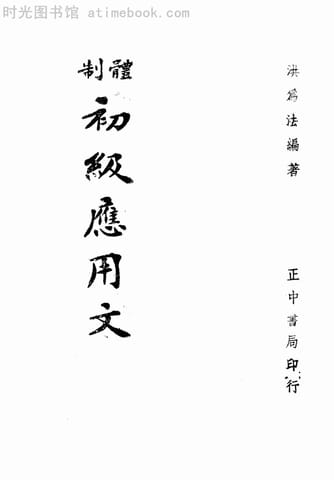 时光图书馆 atimebook.com
洪為法編著
正中書局印行
體制
初級應用文